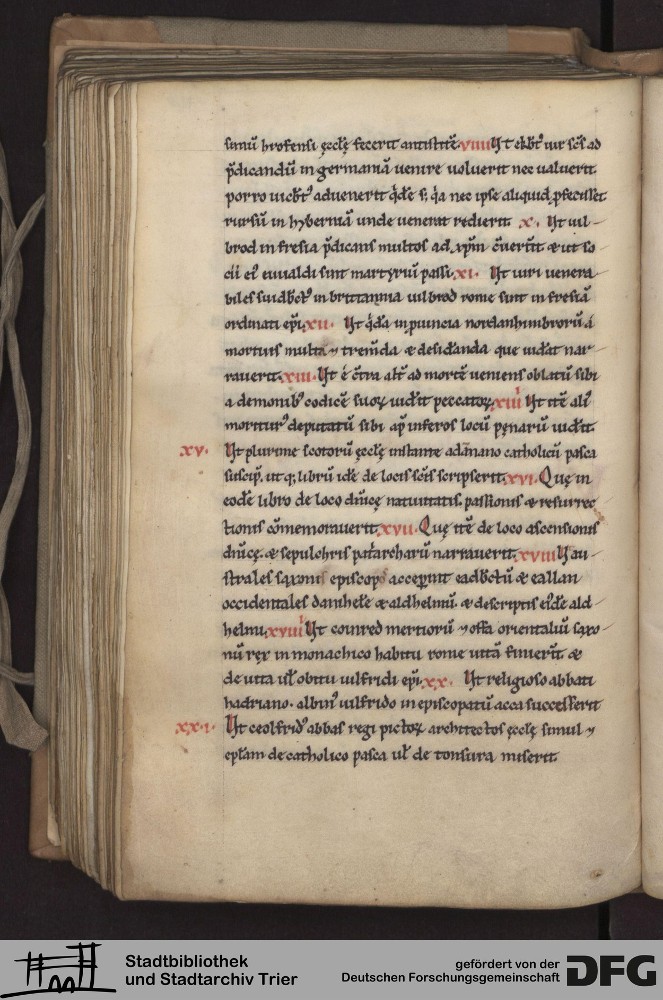 simū hrofensi ęcclę fecerit antistitē. viiii Ut ekbt' uir scs ad
p̄dicandū in germaniā uenire uoluerit nec ualuerit.
porro uicbt' aduenerit qde s; qa nec ipse aliquid pfecisset
rursū in hyberniā unde uenerat redierit. x. Ut uil-
brod in fresia p̄dicans multos ad xpm c̄uerīt & ut so
cii ei' euualdi sint martyrū passi. xi. Ut uiri uenera
biles suidbt' in brittannia uilbrod rome sint in fresiā
ordinati epi. xii. Ut qda in puincia nordanhimbrorū a
mortuis multa ⁊ trem̄da & desid'anda que uid'at nar-
rauerit. xiii. Ut ē c̄tra alt' ad mortē ueniens oblatū sibi
a demonib' codicē suoꝝ uid'it peccatoꝝ. xiiii Ut itē ali'
moritur' deputatū sibi ap' inferos locū pęnarū uid'it.
xv. Ut plurime scotorū ęcclę instante adamnano catholicū pasca
suscip. ut q; librū ide de locis scis scripserit. xvi. Quę in
eode libro de loco dnicę natiuitatis. passionis & resurrec
tionis c̄memorauerit. xvii. Quę itē de loco ascensionis
dnicę. & sepulchris patriarcharū narrauerit. xviii Ut au-
strales saxonis episcopos acceperint eadbctū & eallan
occidentales danihele & aldhelmū. & de scriptis ei'de ald
helmi. xviiii Ut coinred merciorū ⁊ offa orientaliū saxo-
nū rex in monachico habitu rome uitā finierīt. &
de uita ul' obitu uilfridi epi. xx. Ut religioso abbati
hadriano. albin' uilfrido in episcopatū acca successerit
xxi. Ut ceolfrid' abbas regi pictoꝝ architectos ęcclę simul ⁊
eplam de catholico pasca ul' de tonsura miserit.
Stadtbibliothek
und Stadtarchiv Trier
gefördert von der
Deutschen Forschungsgemeinschaft
DFG